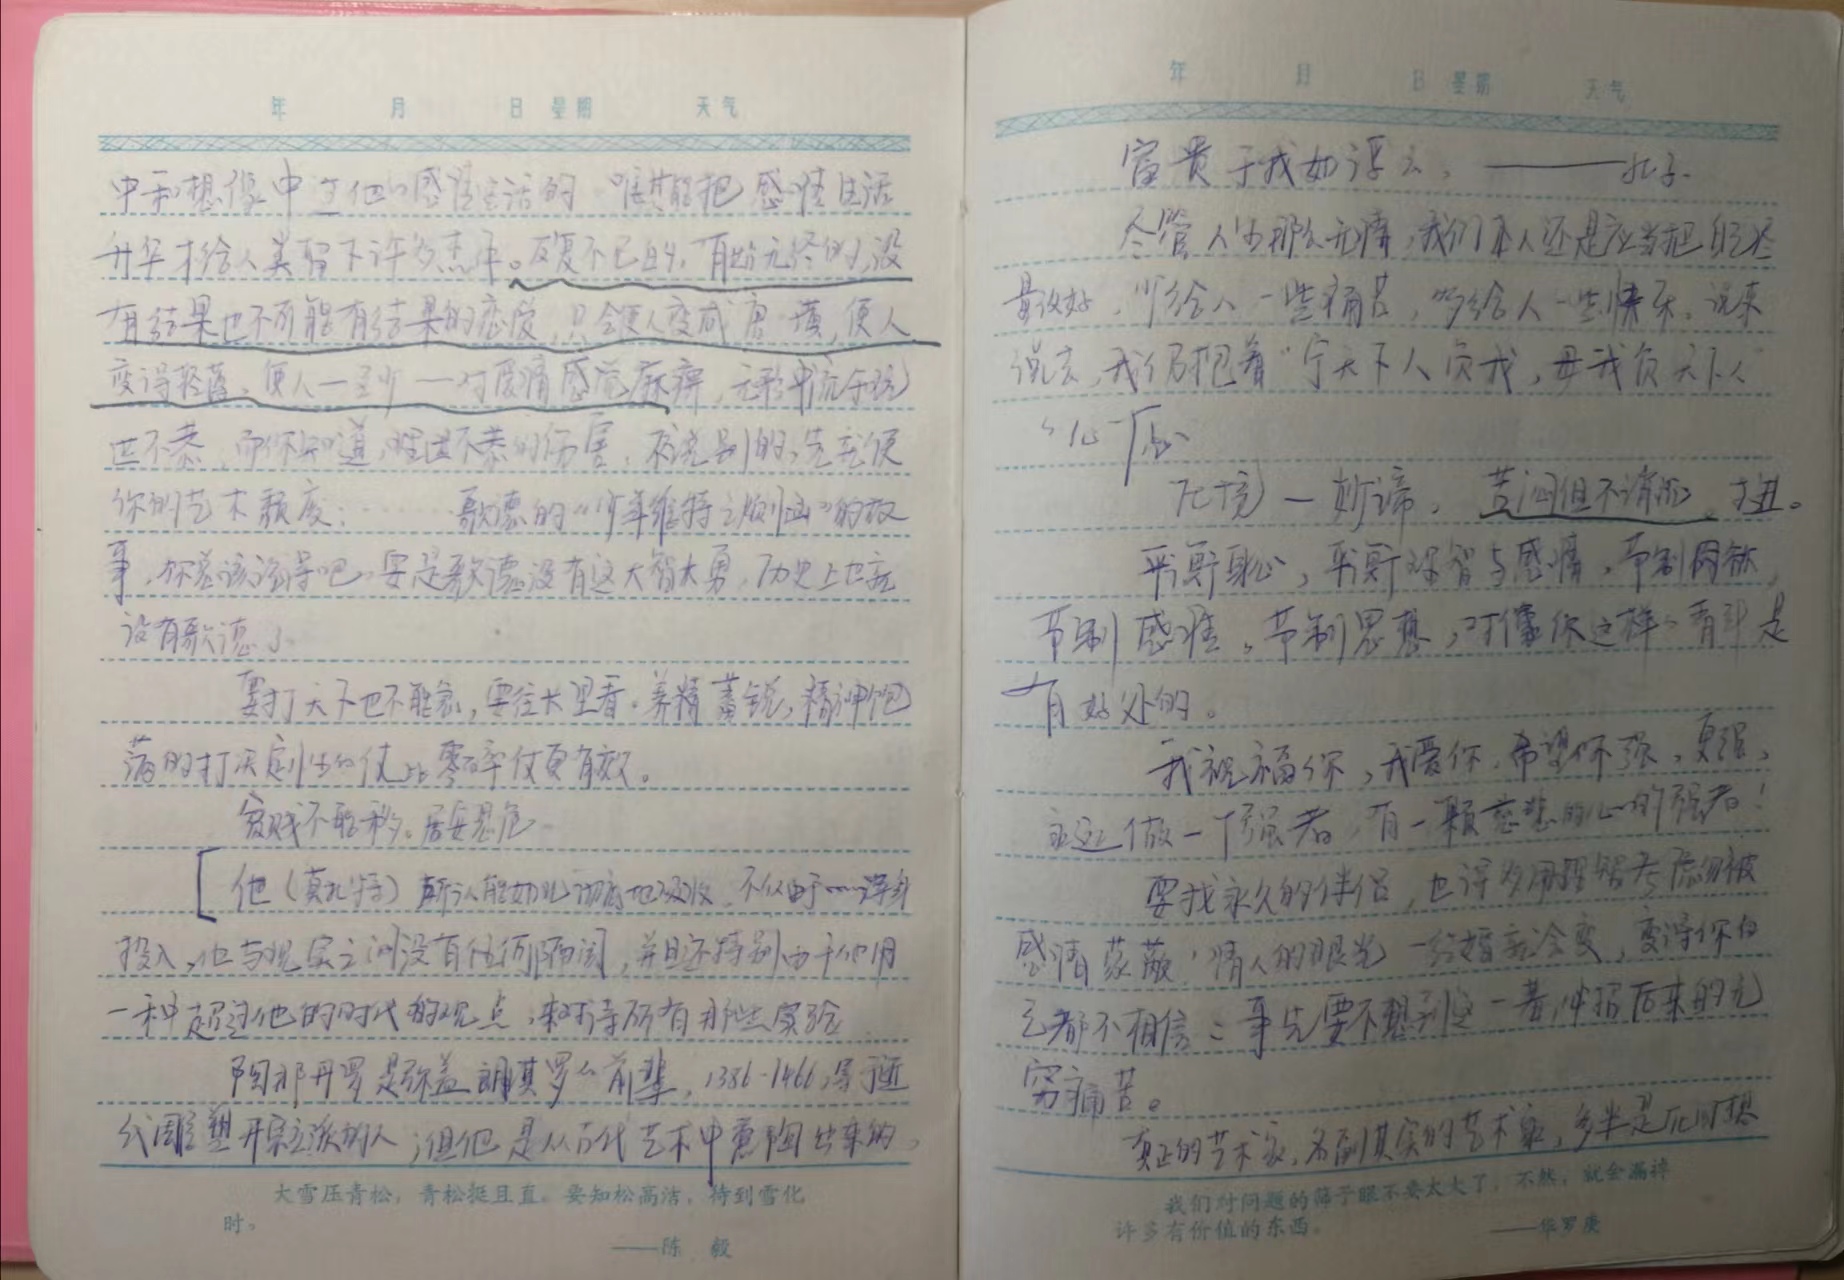 年 月 日 星期 天气
中和想像中过他的感情生活的 唯其能把感情生活
升华才给人类留下许多杰作。反复不已的,有始无终的,没
有结果也不可能有结果的恋爱,只会使人变成唐·璜,使人
变得轻薄,使人——至少——对爱情感觉麻痹,无形中流于玩
世不恭,而你知道,玩世不恭的伤害,不说别的,先就使
你的艺术颓废:…… 歌德的“少年维特之烦恼”的故
事,你总该记得吧,要是歌德没有这大智大勇,历史上也就
没有歌德了
要打天下也不能急,要往长里看。养精蓄锐,精神饱
满的打决定性的仗比零碎仗更有效。
贫贱不能移。居安思危
他(莫扎特)所以能如此彻底地吸收,不仅由于……浑身
投入,他与现实之间没有任何隔阂,并且还特别由于他用
一种超过他的时代的观点,来对待所有那些实验
陶那丹罗是弥盖朗琪罗的前辈,1386-1466,等于近
代雕塑开宗立派的人,但他是从古代艺术中熏陶出来的,
大雪压青松,青松挺且直。要知松高洁,待到雪化
时。
——陈 毅
年 月 日 星期 天气
富贵于我如浮云。——孔子
尽管人生那么无情,我们本人还是应当把自己尽
量改好,少给人一些痛苦,多给人一些快乐。说来
说去,我仍抱着“宁天下人负我,毋我负天下人
”心
化境 一妙谛。苦闷但不消沉
平衡身心,平衡理智与感情,节制肉欲,
节制感情,节制思想,对像你这样的青年是
有好处的。
我祝福你,我爱你,希望你强,更强,
永远做一个强者,有一颗慈悲的心的强者!
要找永久的伴侣,也得多用理智考虑勿被
感情蒙蔽!情人的眼光一结婚就会变,变得你自
己都不相信:事先要不想到这一着,必招后来的无
穷痛苦。
真正的艺术家,名副其实的艺术家,多半是在回想
我们对问题的筛子眼不要太大了,不然,就会漏掉
许多有价值的东西。
——华罗庚